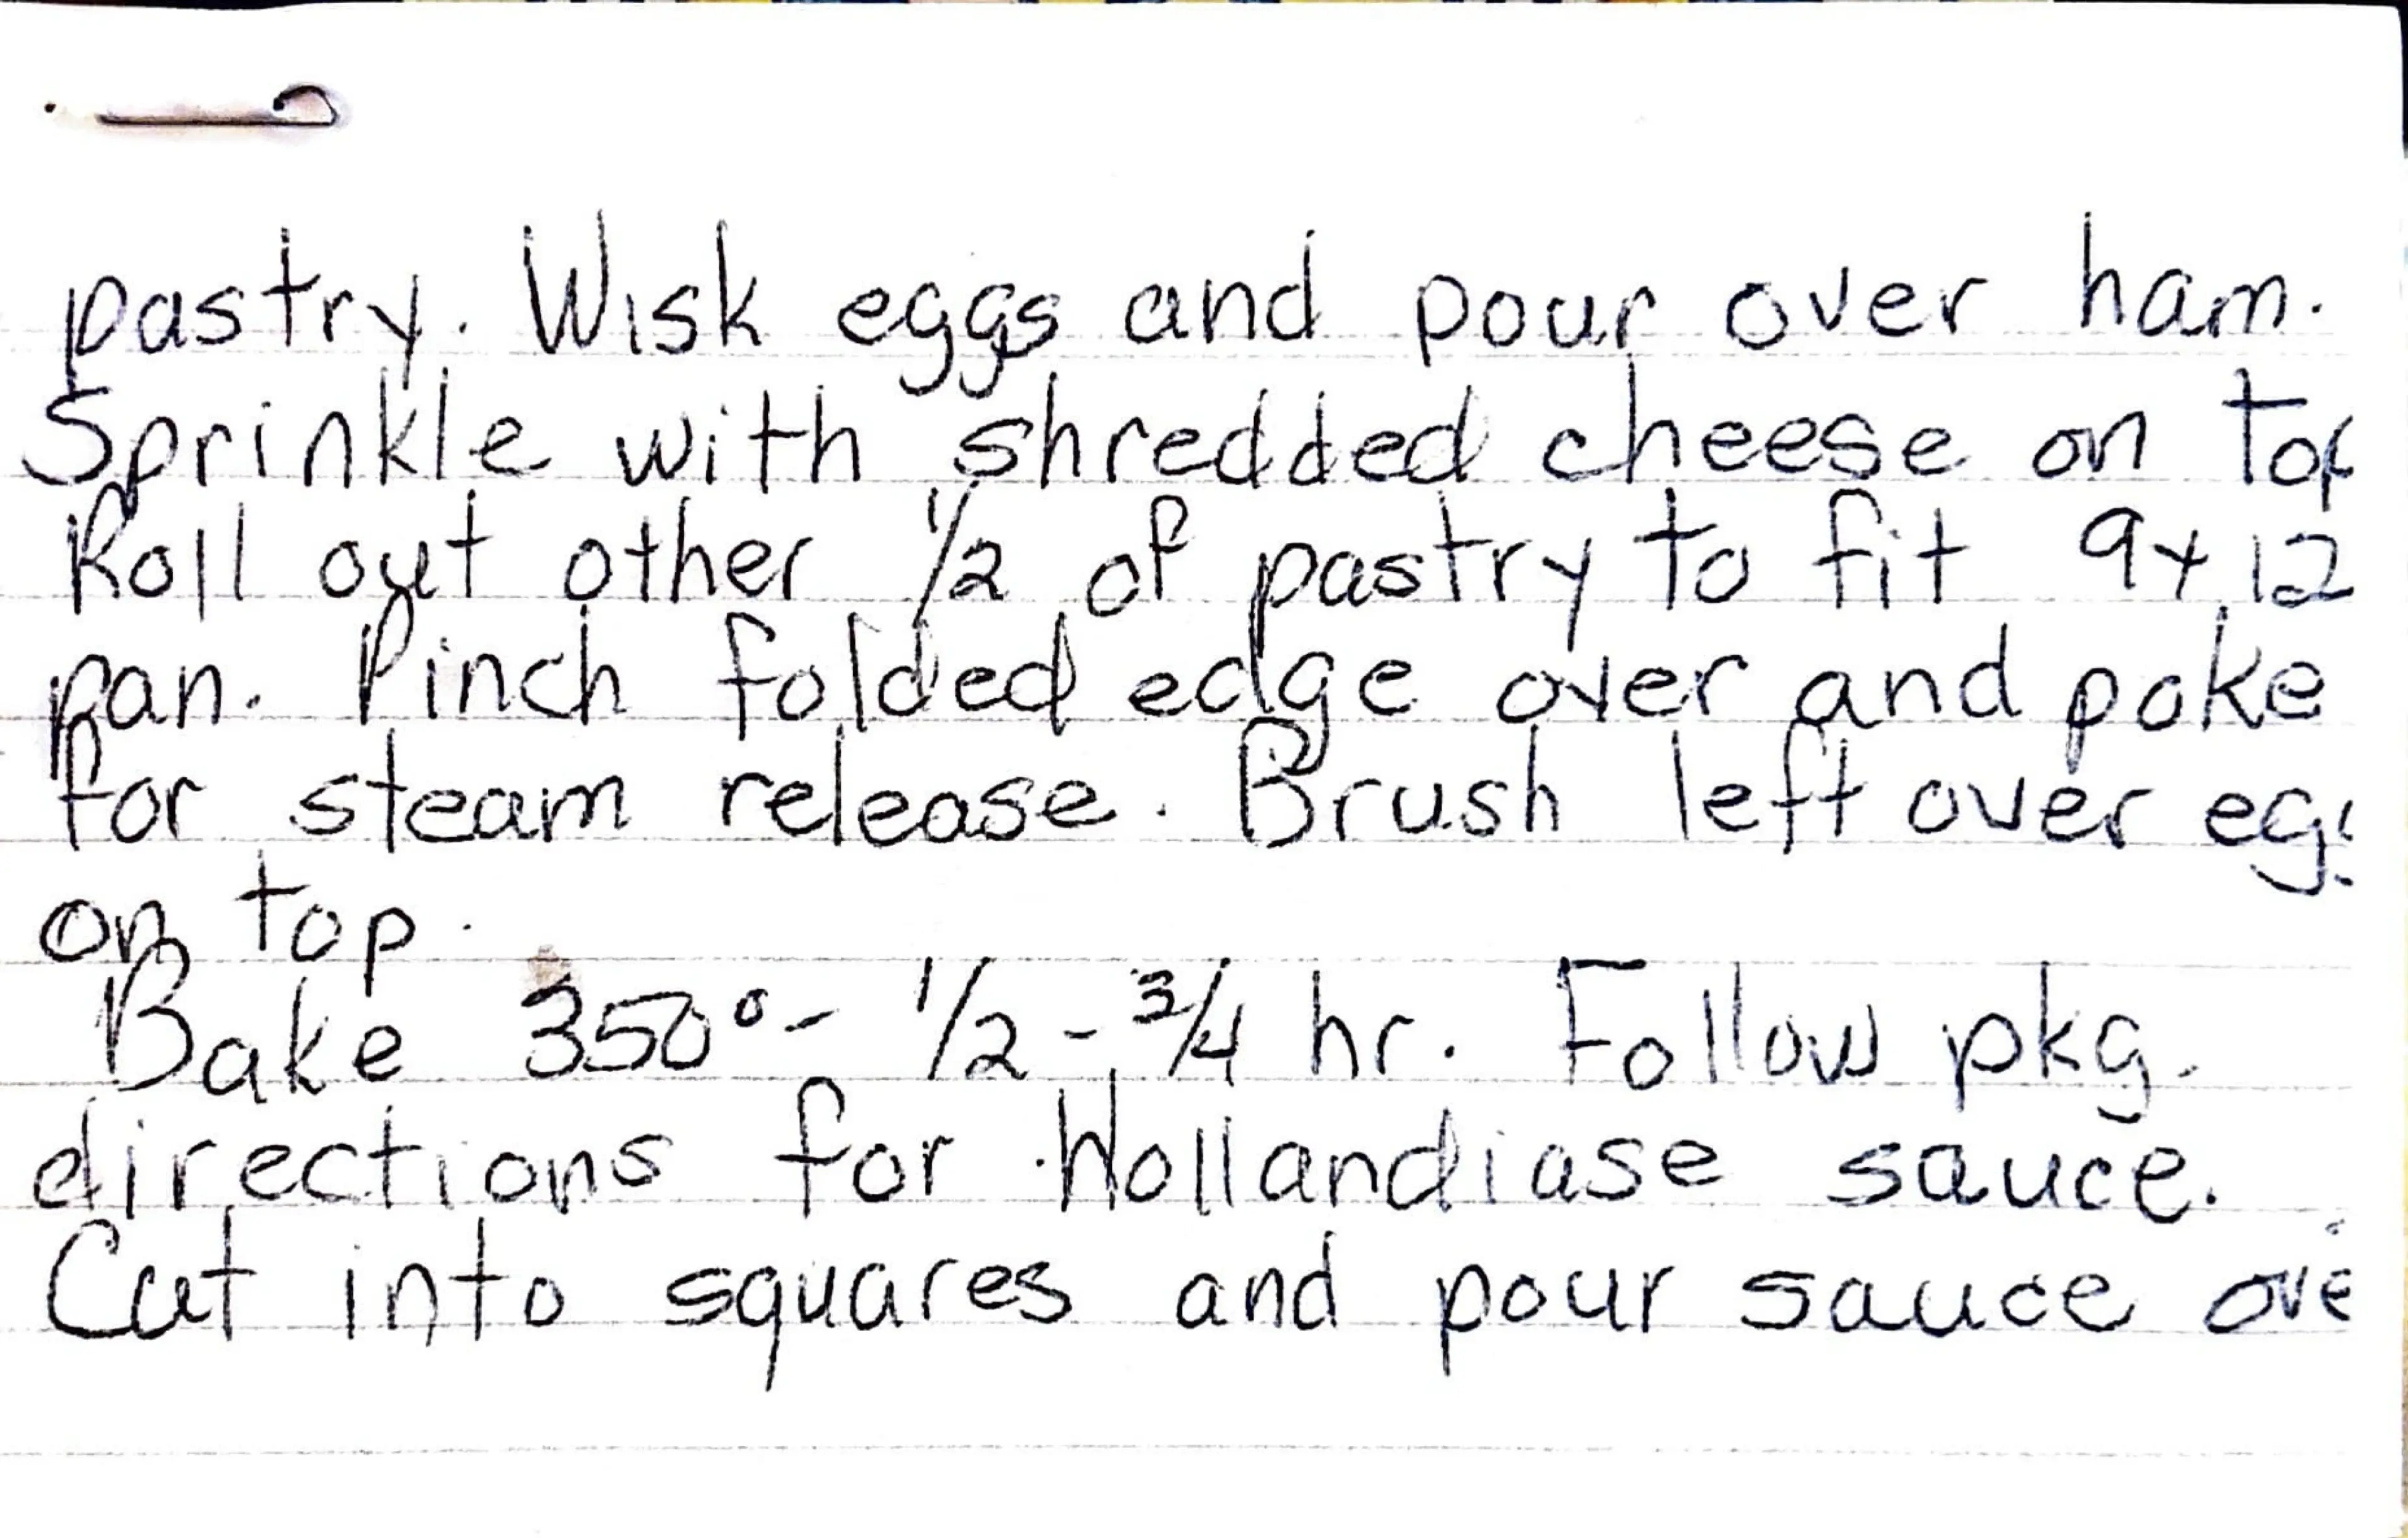 pastry. Wisk eggs and pour over ham.
Sprinkle with shredded cheese on top
Roll out other 1/2 of pastry to fit 9x12
pan. Pinch folded edge over and poke
for steam release. Brush left over egg
on top.
Bake 350° - 1/2 - 3/4 hr. Follow pkg.
directions for Hollandiase sauce.
Cut into squares and pour sauce ove